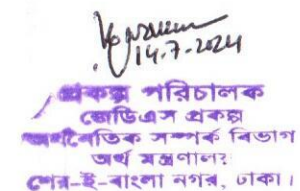 14-7-2024
প্রকল্প পরিচালক
জেডিএস প্রকল্প
অর্থনৈতিক সম্পর্ক বিভাগ
অর্থ মন্ত্রণালয়
শের-ই-বাংলা নগর, ঢাকা।